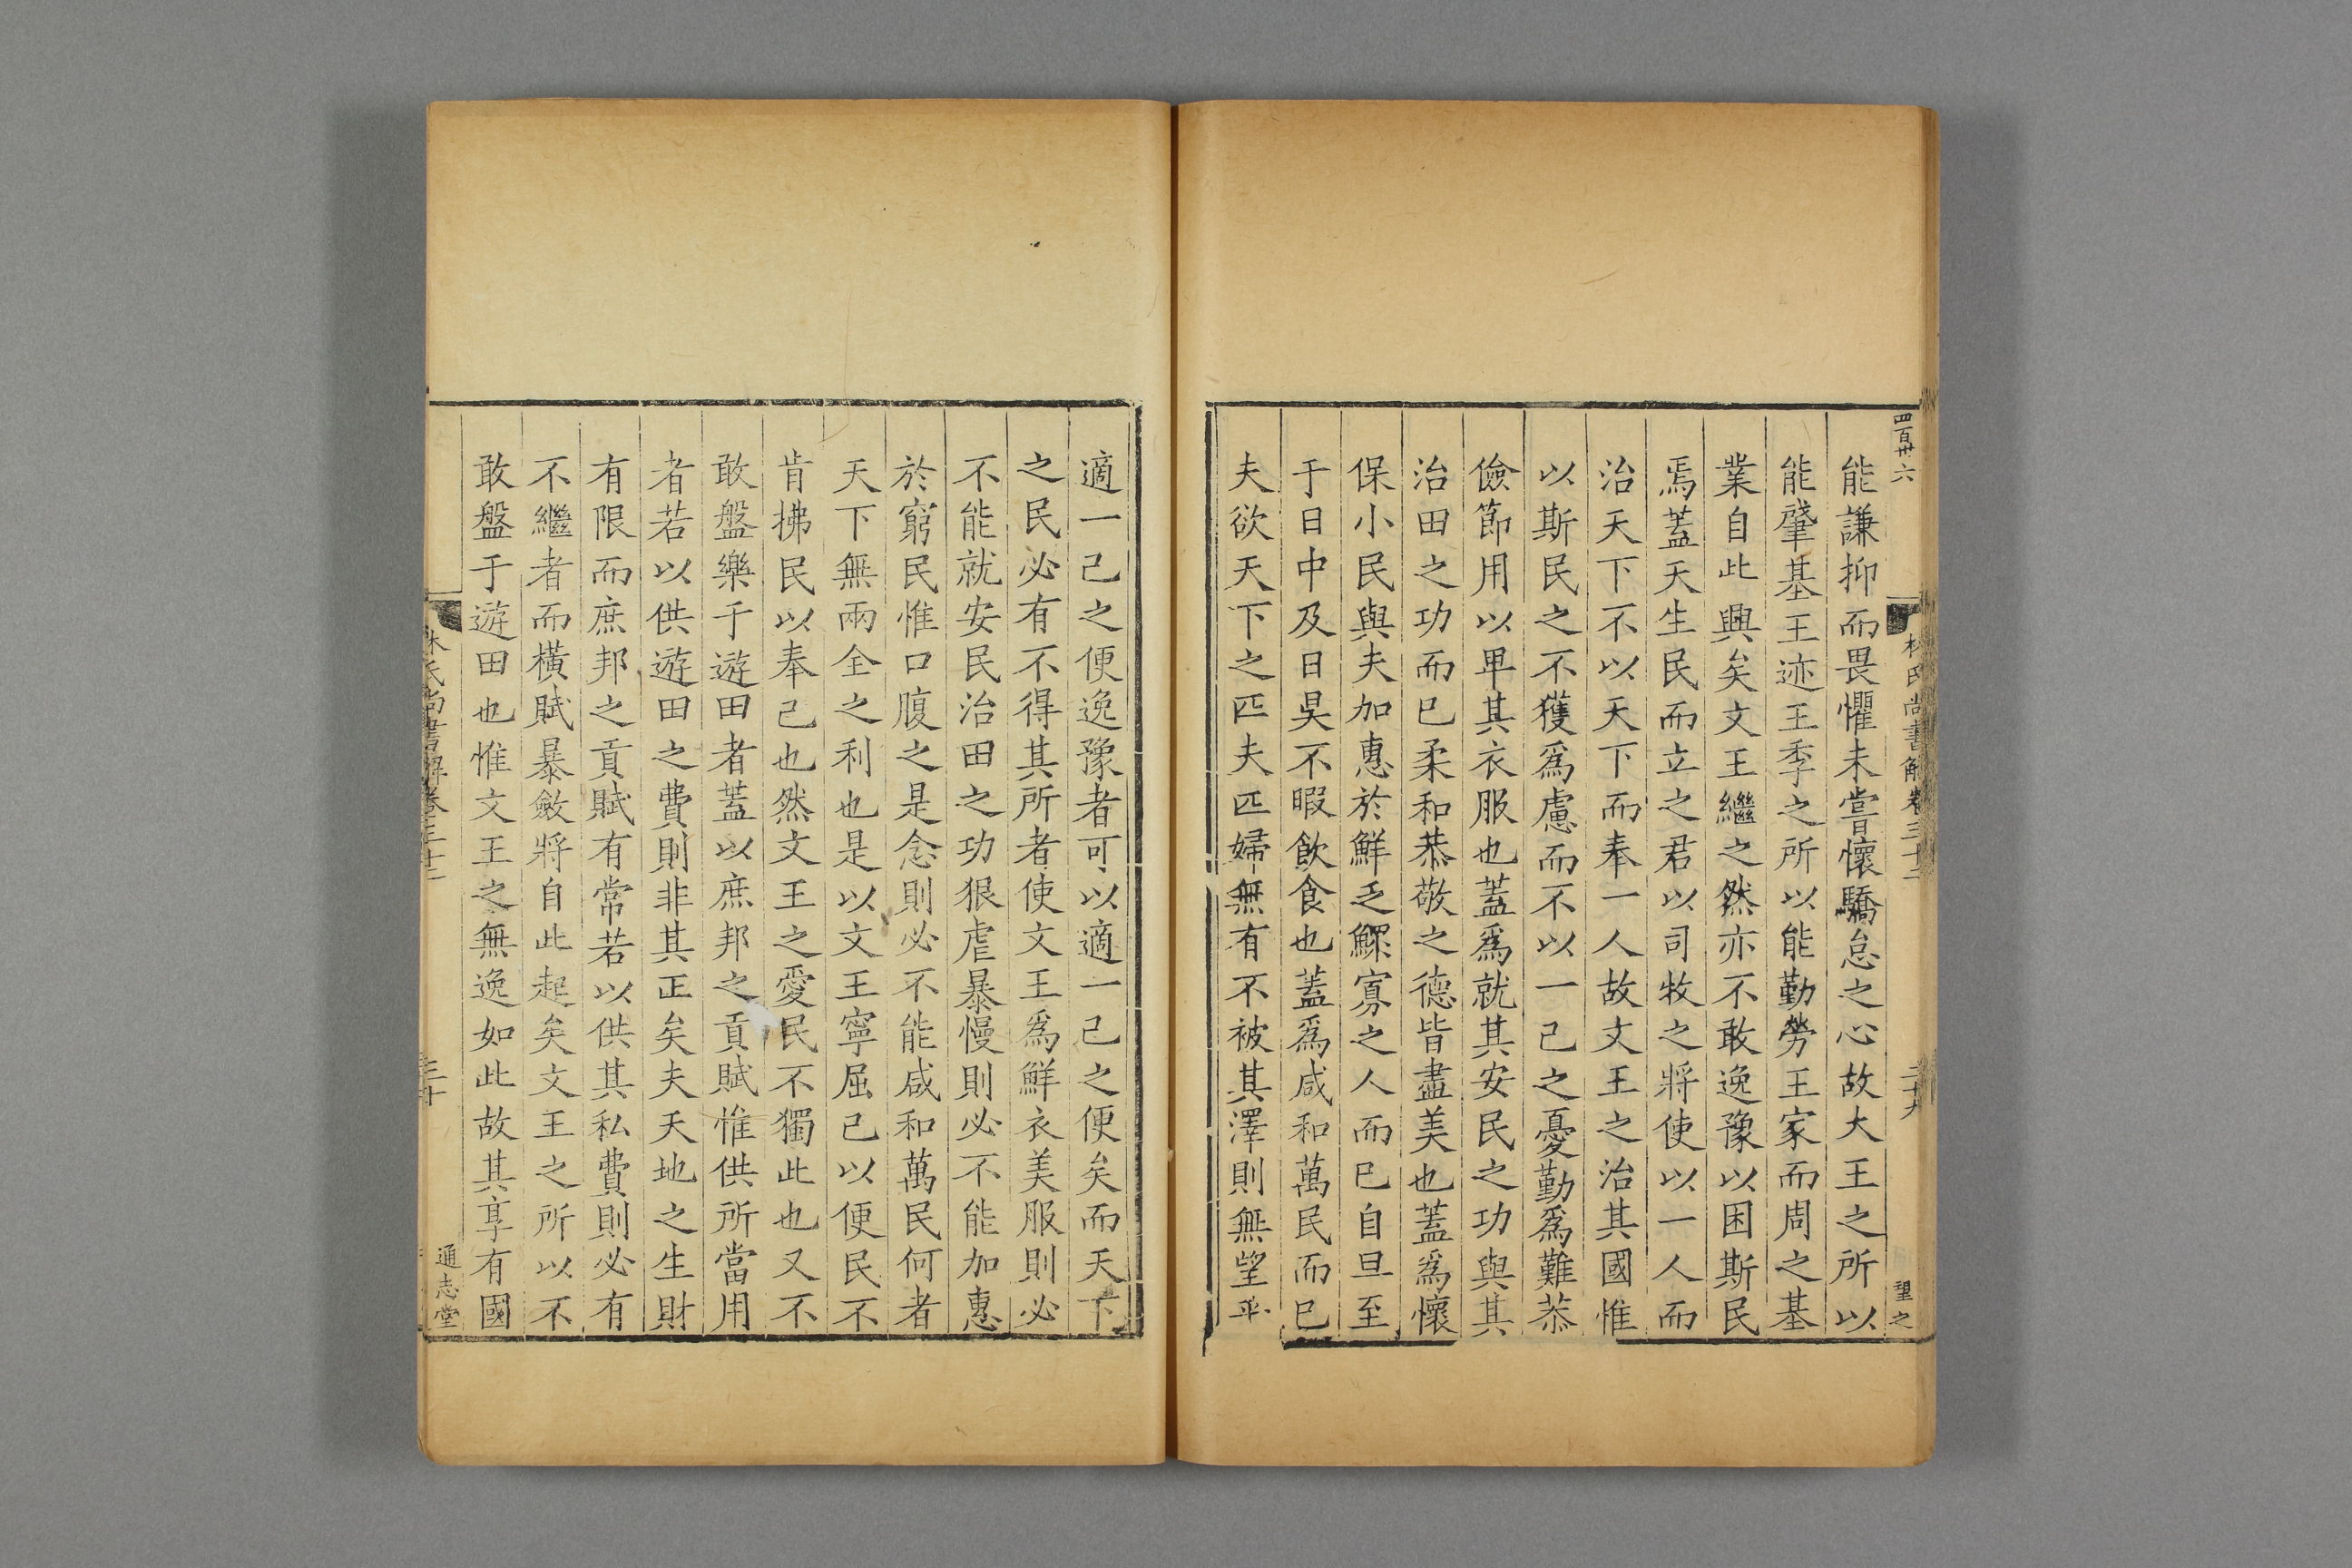 四百卅六
林氏尚書解卷三十二
二十九
望之
能謙抑而畏懼未嘗懷驕怠之心故大王之所以
能肇基王迹王季之所以能勤勞王家而周之基
業自此興矣文王繼之然亦不敢逸豫以困斯民
焉蓋天生民而立之君以司牧之將使以一人而
治天下不以天下而奉一人故文王之治其國惟
以斯民之不獲爲慮而不以一己之憂勤爲難恭
儉節用以卑其衣服也蓋爲就其安民之功與其
治田之功而已柔和恭敬之德皆盡美也蓋爲懷
保小民與夫加惠於鮮乏鰥寡之人而已自旦至
于日中及日昃不暇飲食也蓋爲咸和萬民而已
夫欲天下之匹夫匹婦無有不被其澤則無望乎
適一己之便逸豫者可以適一己之便矣而天下
之民必有不得其所者使文王爲鮮衣美服則必
不能就安民治田之功狠虐暴慢則必不能加惠
於窮民惟口腹之是念則必不能咸和萬民何者
天下無兩全之利也是以文王寧屈己以便民不
肯拂民以奉己也然文王之愛民不獨此也又不
敢盤樂于遊田者蓋以庶邦之貢賦惟供所當用
者若以供遊田之費則非其正矣夫天地之生財
有限而庶邦之貢賦有常若以供其私費則必有
不繼者而橫賦暴斂將自此起矣文王之所以不
敢盤于遊田也惟文王之無逸如此故其享有國
林氏尚書解卷三十二
三十
通志堂